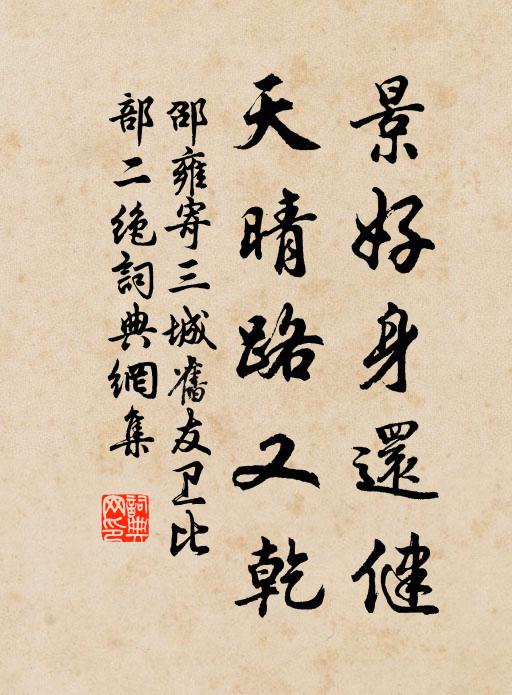 景好身還健
天晴路又乾
邵雍寄三城舊友卫比
部二絶詞典網集
詞典
网印